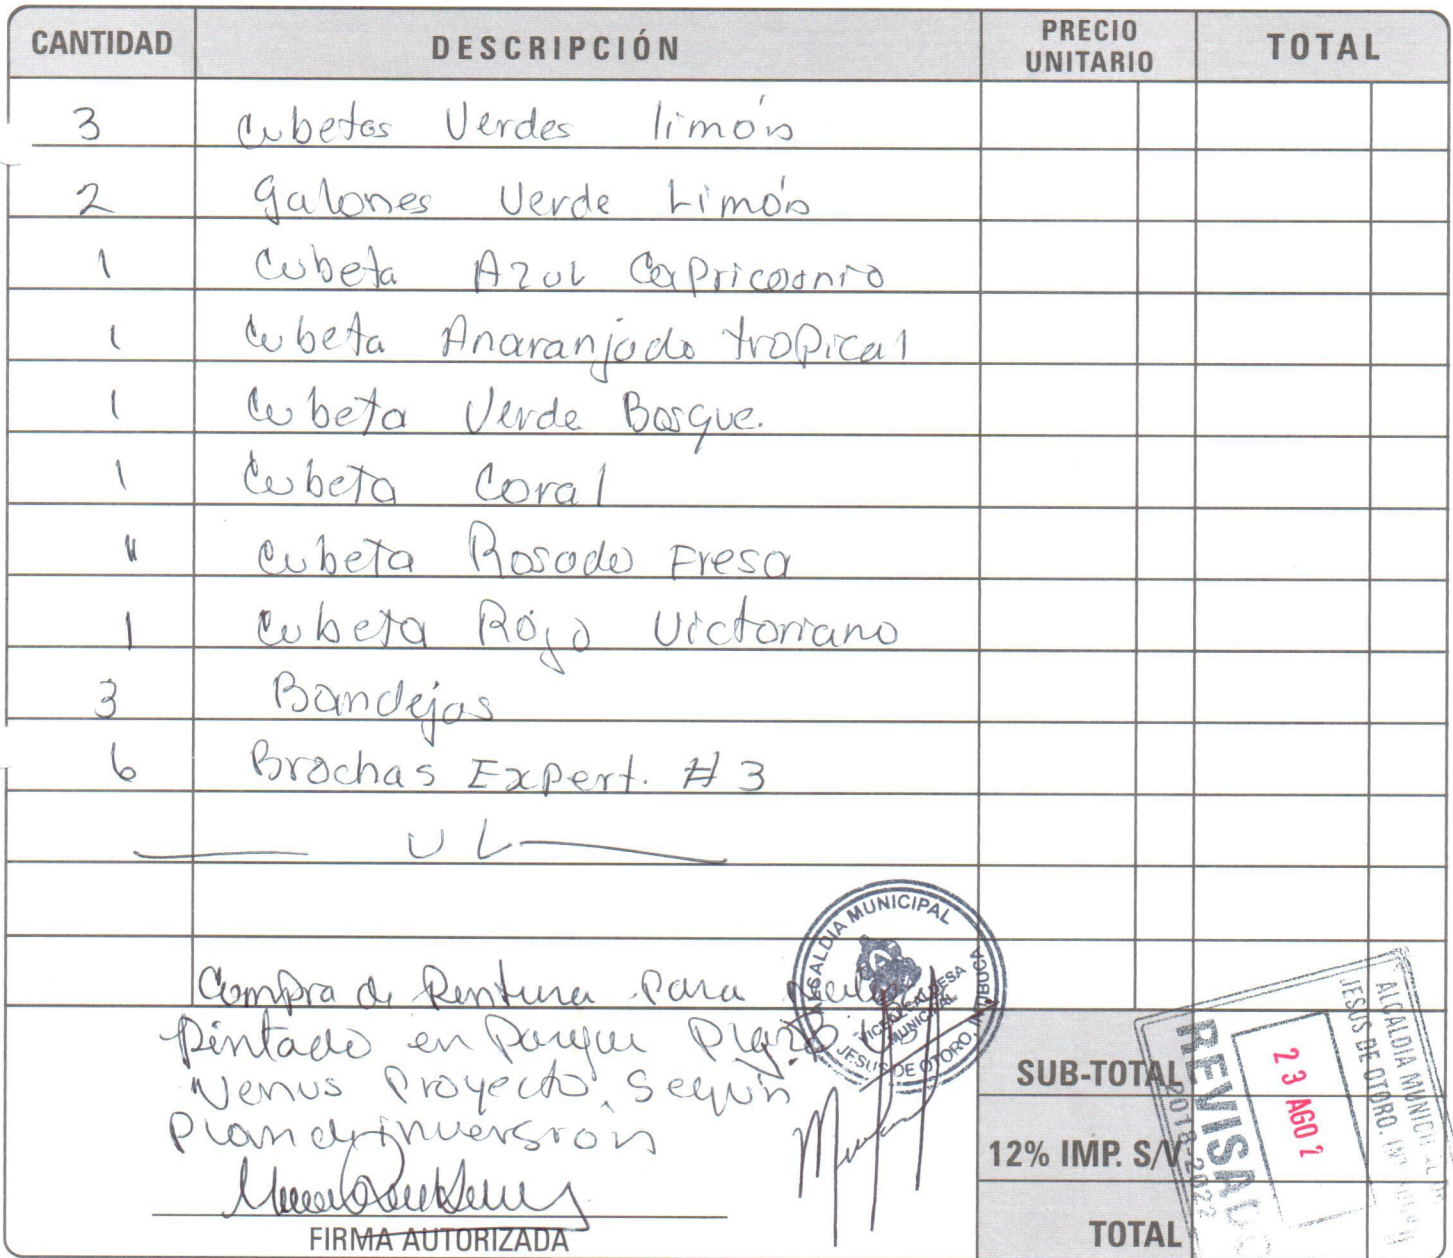 CANTIDAD DESCRIPCIÓN PRECIO UNITARIO TOTAL
3 Cubetas Verdes limón
2 Galones Verde Limón
1 Cubeta Azul Capricornio
1 Cubeta Anaranjado tropical
1 Cubeta Verde Bosque.
1 Cubeta Coral
" Cubeta Rosado Fresa
1 Cubeta Rojo Victoriano
3 Bandejas
6 Brochas Expert. #3
UL
Compra de Pintura para
pintado en Parque Plaza
Venus Proyecto, Según
Plan de inversión
FIRMA AUTORIZADA
ALCALDIA MUNICIPAL
VICE ALCALDESA
MUNICIPAL
JESUS DE OTORO, INTIBUCA
SUB-TOTAL
12% IMP. S/V
TOTAL
ALCALDIA MUNICIPAL
JESUS DE OTORO,
23 AGO 2
REVISADO
2018-2022